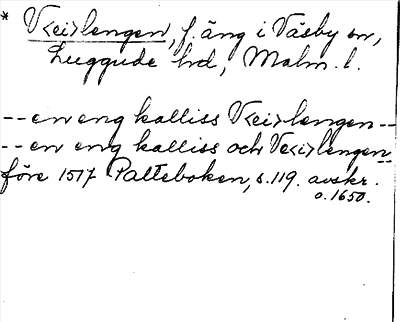 * V<ei>lengen, f. äng i Väsby sn,
Luggude hd, Malm. l.
-- en eng kalliss V<ei>lengen --
-- en eng kalliss och Ve<i>lengen --
före 1517 Palteboken, s. 119. avskr.
o. 1650.